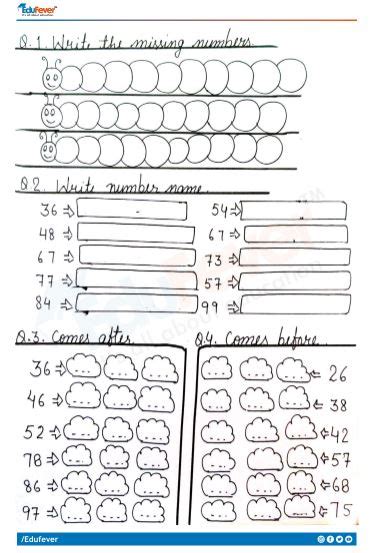 EduFever
It's all about education
Q.1. Write the missing numbers.
Q2. Write number name.
36 ⇒ 54 ⇒
48 ⇒ 67 ⇒
67 ⇒ 73 ⇒
77 ⇒ 57 ⇒
84 ⇒ 99 ⇒
Q.3. Comes after. Q.4. Comes before.
36 ⇒ ⇐ 26
46 ⇒ ⇐ 38
52 ⇒ ⇐ 42
78 ⇒ ⇐ 57
86 ⇒ ⇐ 68
97 ⇒ ⇐ 75
/Edufever